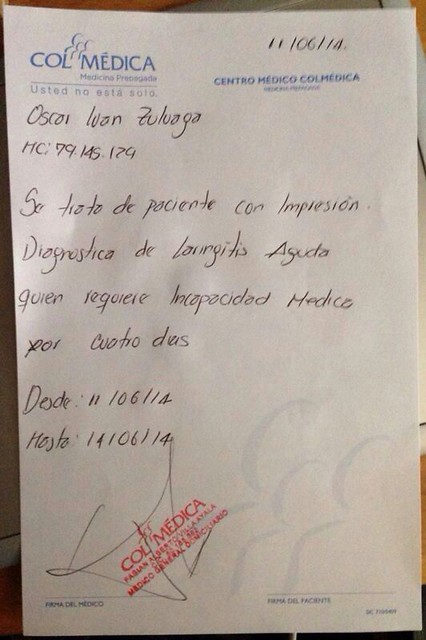 11/06/14.
COLMÉDICA
Medicina Prepagada
Usted no está solo.
CENTRO MÉDICO COLMÉDICA
MEDICINA PREPAGADA
Oscar Ivan Zuluaga
HC: 79.145.129
Se trata de paciente con Impresión.
Diagnostica de Laringitis Aguda
quien requiere Incapacidad Medica
por cuatro dias
Desde: 11/06/14
Hasta: 14/06/14
COLMÉDICA
FABIAN ALBERTO VILLA AYALA
MEDICO GENERAL DOMICILIARIO
FIRMA DEL MÉDICO
FIRMA DEL PACIENTE